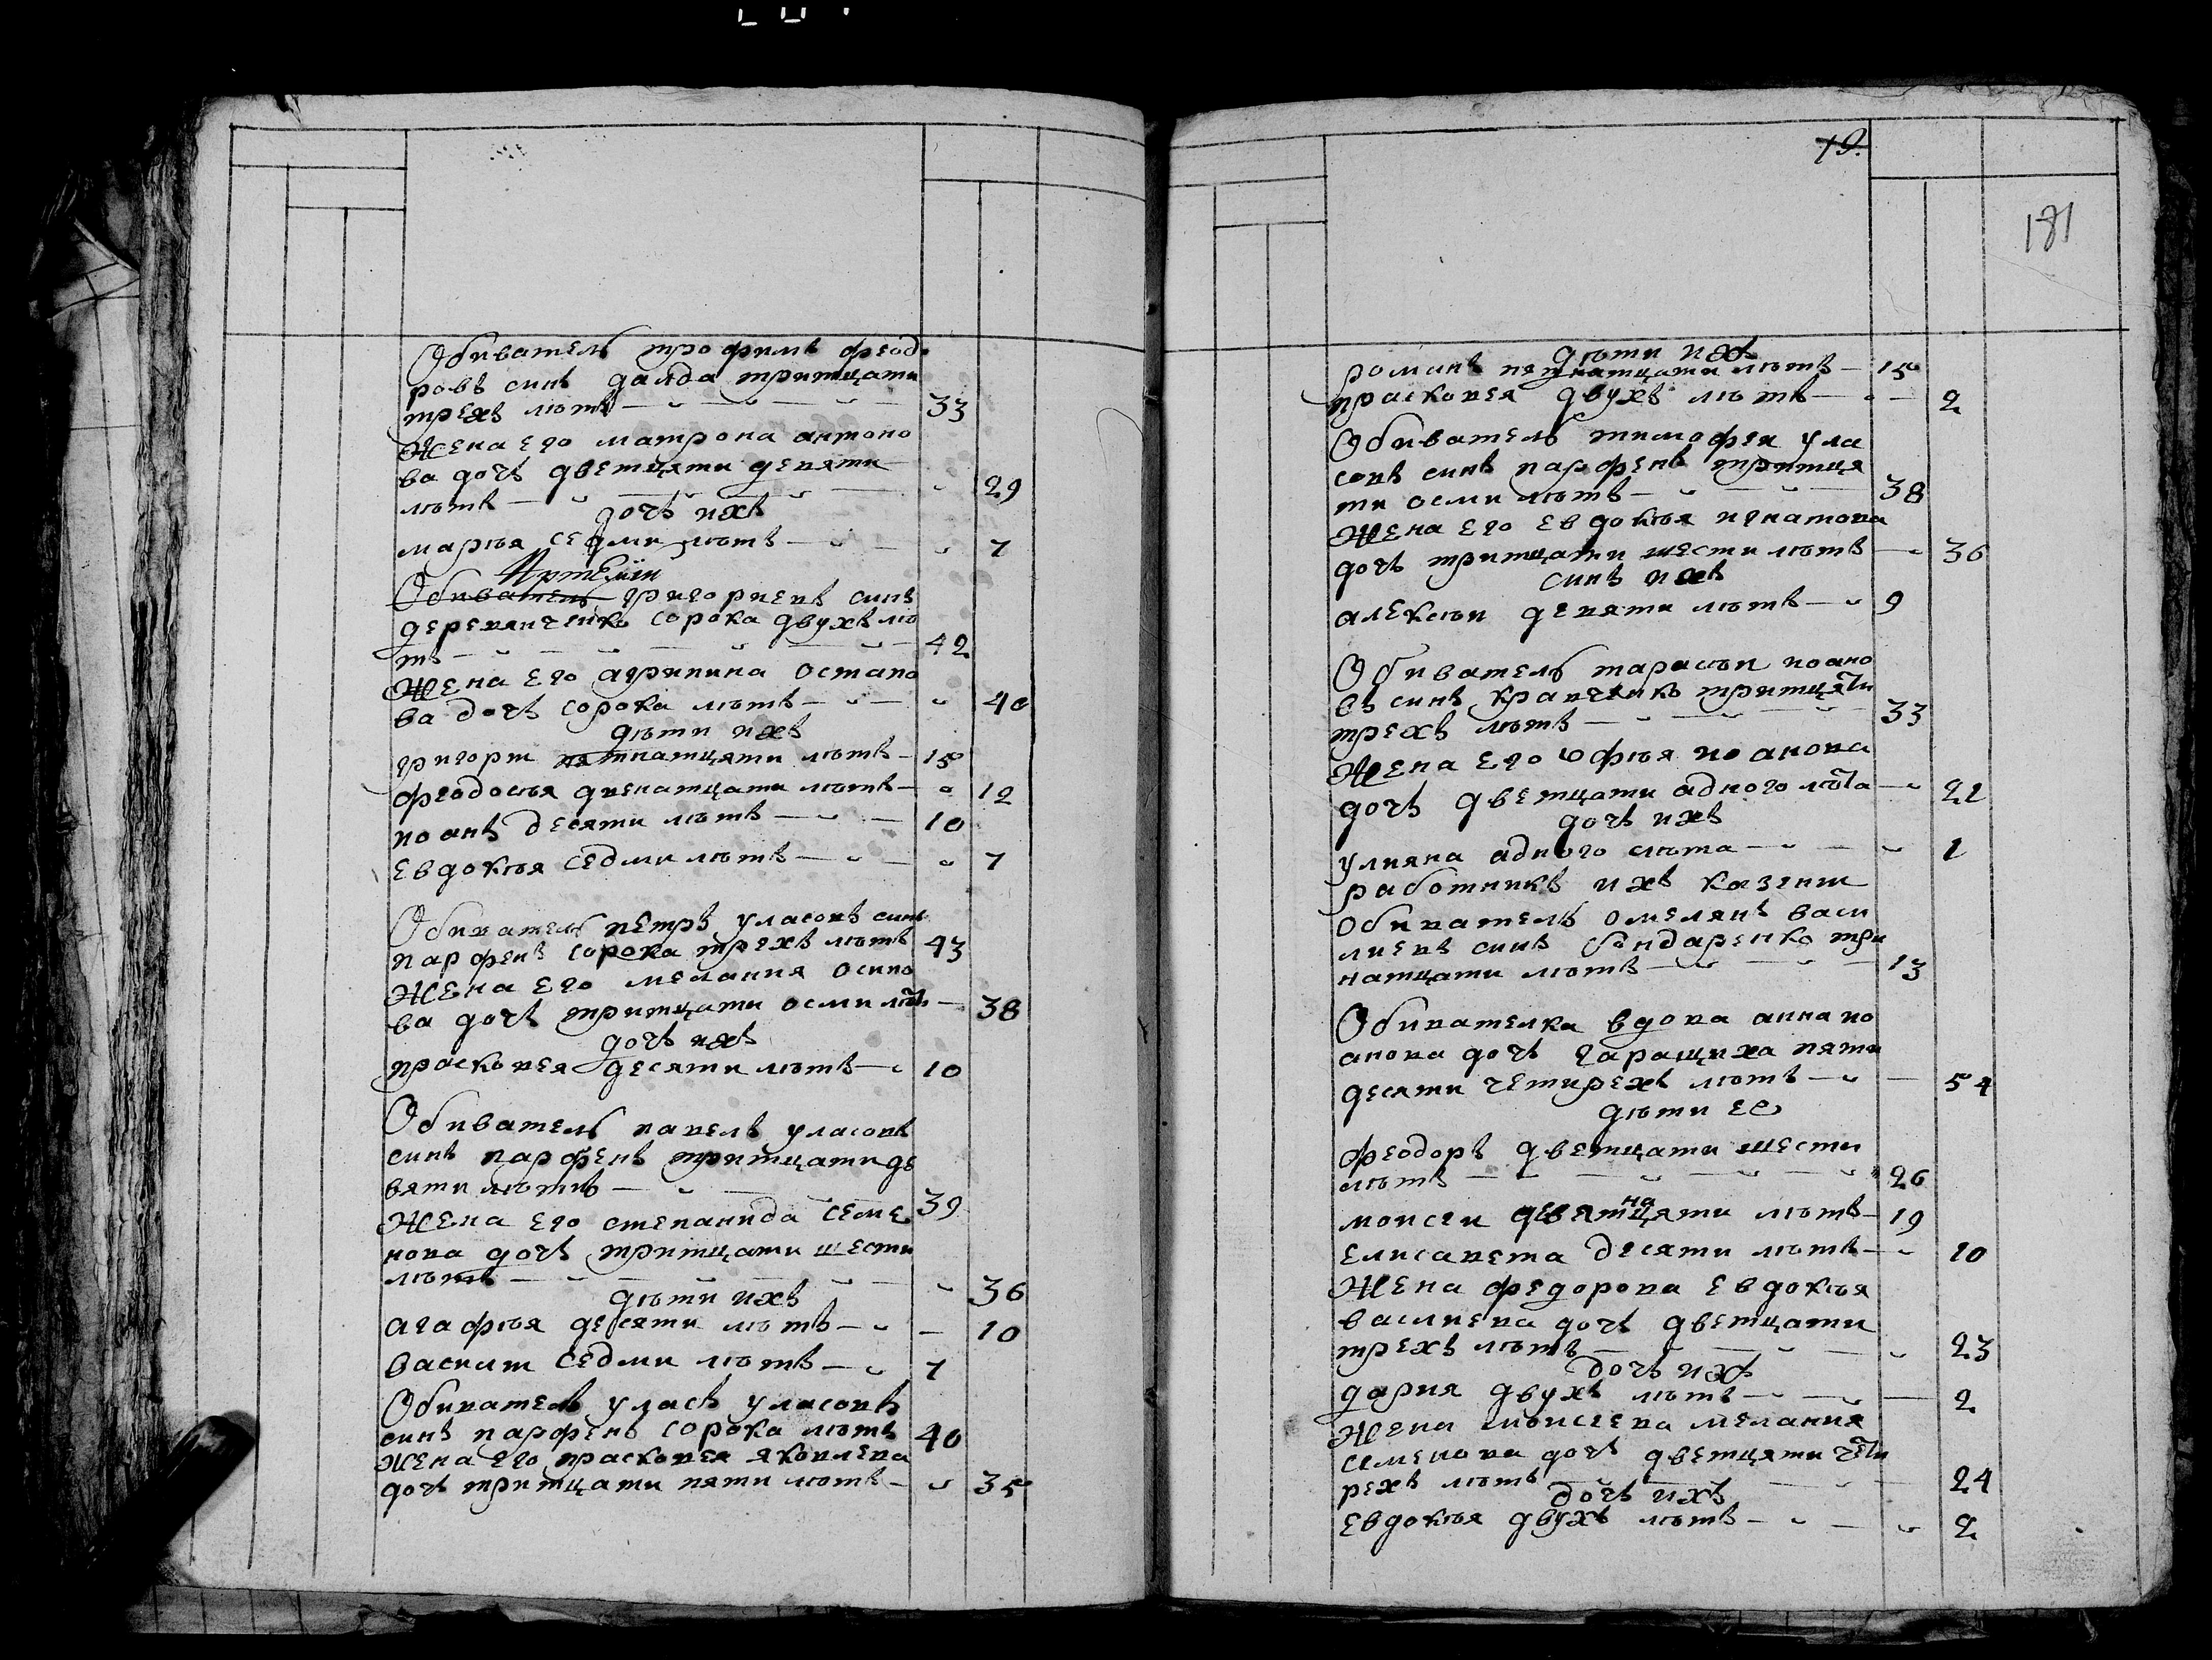 Обиватель трофимъ феодо
ровъ синъ далда тритцати
трехъ лѣтъ 33
Жена его матрона антоно
ва дочъ дветцяти девяти
лѣтъ 29
дочъ ихъ
марѣя седми лѣтъ 7
Артемїи
Обиватель григориевъ синъ
деревянченко сорока двухъ лѣ
тъ 42
Жена его агрипина остапо
ва дочъ сорока лѣтъ 40
дѣти ихъ
григори пятнатцяти лѣтъ 15
феодосѣя двенатцати лѣтъ 12
иоанъ десяти лѣтъ 10
евдокѣя седми лѣтъ 7
Обиватель петръ уласовъ синъ
парфенъ сорока трехъ лѣтъ 43
Жена его мелания осипо
ва дочъ тритцати осми лѣтъ 38
дочъ ихъ
прасковея десяти лѣтъ 10
Обиватель павелъ уласовъ
синъ парфенъ тритцати де
вяти лѣтъ 39
Жена его степанида семе
нова дочъ тритцати шести
лѣтъ 36
дѣти ихъ
агафѣя десяти лѣтъ 10
васили седми лѣтъ 7
Обиватель уласъ уласовъ
синъ парфенъ сорока лѣтъ 40
Жена его прасковея яковлева
дочъ тритцати пяти лѣтъ 35
19.
181
дѣти ихъ
романъ пятнатцати лѣтъ 15
прасковея двухъ лѣтъ 2
Обиватель тимофеи ула
совъ синъ парфенъ тритця
ти осми лѣтъ 38
Жена его евдокѣя игнатова
дочъ тритцати шести лѣтъ 36
синъ ихъ
алексѣи девяти лѣтъ 9
Обиватель тарасѣи иоано
въ синъ кравченко тритцяти
трехъ лѣтъ 33
Жена его софѣя иоанова
дочъ дветцати адного лѣта 21
дочъ ихъ
улияна адного лѣта 1
работникъ ихъ казении
обиватель омелянъ васи
лиевъ синъ бондаренко три
натцати лѣтъ 13
Обивателка вдова анна ио
анова дочъ гаращиха пяти
десяти четирехъ лѣтъ 54
дѣти ее
феодоръ дветцати шести
лѣтъ 26
моисеи девятнацяти лѣтъ 19
елисавета десяти лѣтъ 10
Жена федорова евдокѣя
василиева дочъ дветцати
трехъ лѣтъ 23
дочъ ихъ
дария двухъ лѣтъ 2
Жена моисеева мелания
семенова дочъ дветцяти чети
рехъ лѣтъ 24
дочъ ихъ
евдокѣя двухъ лѣтъ 2